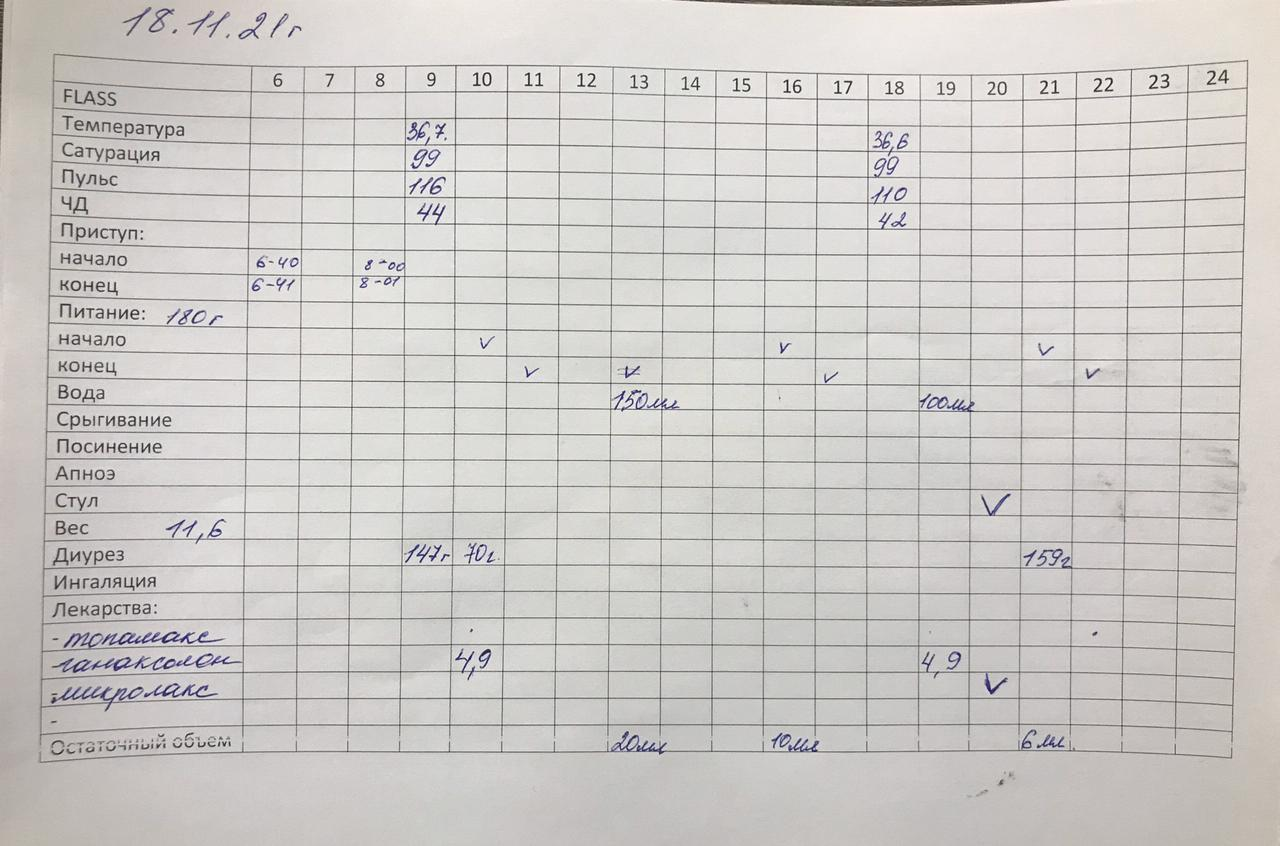 18.11.21г
6 7 8 9 10 11 12 13 14 15 16 17 18 19 20 21 22 23 24
FLASS
Температура 36,7. 36,6
Сатурация 99 99
Пульс 116 110
ЧД 44 42
Приступ:
начало 6-40 8-00
конец 6-41 8-01
Питание: 180г
начало ✓ ✓ ✓
конец ✓ ✓ ✓ ✓
Вода 150мл 100мл
Срыгивание
Посинение
Апноэ
Стул ✓
Вес 11,6
Диурез 147г 70г. 159г
Ингаляция
Лекарства:
- топамакс
- ганаксолон 4,9 4,9
- микролакс ✓
-
Остаточный объем 20мл 10мл 6мл.